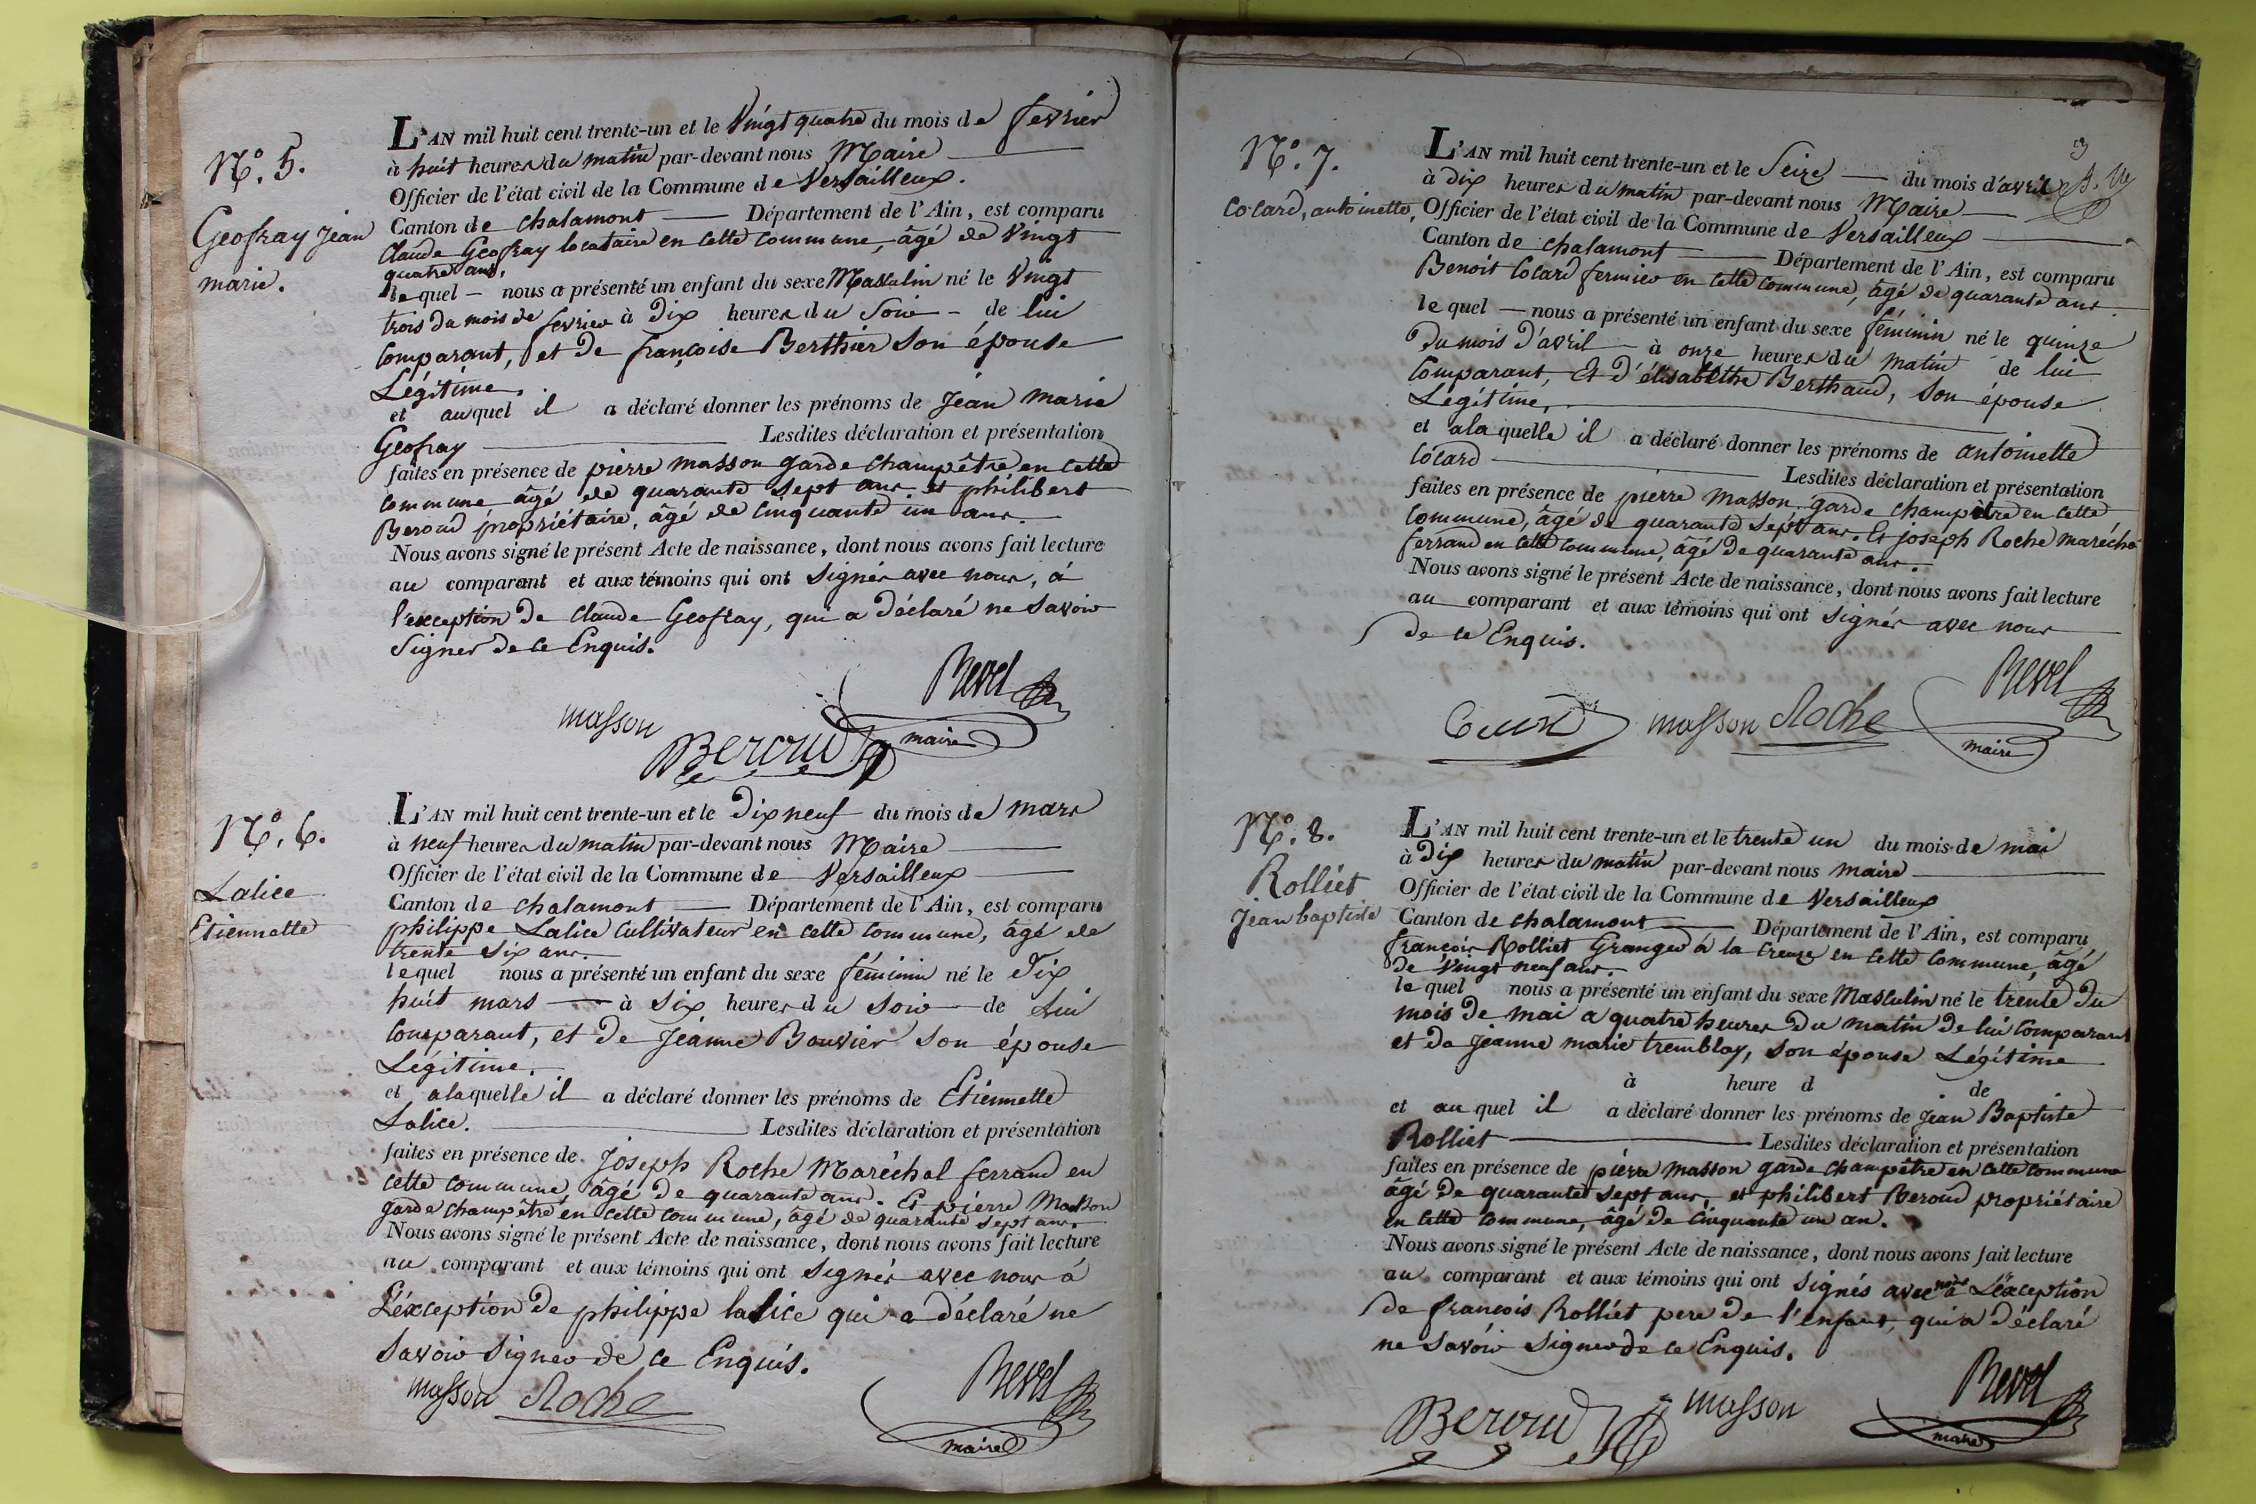 N.º 5.
Geofray Jean
marie.
L'AN mil huit cent trente-un et le Vingt quatre du mois de fevrier
à huit heures du matin par-devant nous Maire
Officier de l'état civil de la Commune de Versailleux.
Canton de chalamont Département de l'Ain, est comparu
Claude Geofray locataire en cette commune, âgé de Vingt
quatre ans,
lequel nous a présenté un enfant du sexe Masculin né le Vingt
trois du mois de fevrier à Dix heures du Soir de lui
Comparant, et de françoise Berthier Son épouse
Légitime.
et auquel il a déclaré donner les prénoms de Jean marie
Geofray Lesdites déclaration et présentation
faites en présence de pierre masson garde champêtre en cette
commune âgé de quarante sept ans et philibert
Beroud propriétaire, âgé de cinquante un ans.
Nous avons signé le présent Acte de naissance, dont nous avons fait lecture
au comparant et aux témoins qui ont Signés avec nous, à
l'exception de Claude Geofray, qui a Déclaré ne Savoir
Signer de ce Enquis.
Revel
masson
Beroud
maire
N.º 6.
Lalice
Etiennette
L'AN mil huit cent trente-un et le Dix neuf du mois de mars
à neuf heures du matin par-devant nous Maire
Officier de l'état civil de la Commune de Versailleux
Canton de chalamont Département de l'Ain, est comparu
philippe Lalice Cultivateur en cette commune, âgé de
trente Six ans.
lequel nous a présenté un enfant du sexe féminin né le Dix
huit mars à Six heures du Soir de Lui
Comparant, et De Jeanne Bouvier Son épouse
Légitime.
et alaquelle il a déclaré donner les prénoms de Etiennette
Lalice. Lesdites déclaration et présentation
faites en présence de Joseph Roche Maréchal ferrand en
cette commune, âgé de quarante ans. Et pierre Masson
garde champêtre en cette commune, âgé de quarante sept ans.
Nous avons signé le présent Acte de naissance, dont nous avons fait lecture
au comparant et aux témoins qui ont Signés avec nous à
L'éxception De philippe lalice qui a déclaré ne
Savoir Signer de ce Enquis.
masson Roche
Revel
maire
3
N.º 7.
Cocard, antoinette,
L'AN mil huit cent trente-un et le Seize du mois d'avril
à Dix heures du matin par-devant nous Maire
Officier de l'état civil de la Commune de Versailleux
Canton de chalamont Département de l'Ain, est comparu
Benoit Cocard fermier en cette commune, âgé de quarante ans.
lequel nous a présenté un enfant du sexe féminin né le quinze
Du mois D'avril à onze heures du matin de lui
Comparant, Et d'élisabethe Berthaud, Son épouse
Légitime,
et alaquelle il a déclaré donner les prénoms de antoinette
Cocard Lesdites déclaration et présentation
faites en présence de pierre Masson garde champêtre en cette
commune, âgé de quarante sept ans. Et joseph Roche maréchal
ferrand en cette commune, âgé de quarante ans.
Nous avons signé le présent Acte de naissance, dont nous avons fait lecture
au comparant et aux témoins qui ont Signés avec nous
de ce Enquis.
Revel
masson Roche
maire
N.º 8.
Rolliet
Jean baptiste
L'AN mil huit cent trente-un et le trente un du mois de mai
à Dix heures du matin par-devant nous maire
Officier de l'état civil de la Commune de Versailleux
Canton de chalamont Département de l'Ain, est comparu
françois Rolliet Granger à la Creuze en cette commune, âgé
de Vingt neuf ans.
lequel nous a présenté un enfant du sexe Masculin né le trente du
mois de mai a quatre heures Du matin De lui Comparant
et de Jeanne marie tremblay, son épouse Légitime
à heure d de
et auquel il a déclaré donner les prénoms de Jean Baptiste
Rolliet Lesdites déclaration et présentation
faites en présence de pierre masson garde champêtre en cette commune
âgé de quarante sept ans, et philibert Beroud propriétaire
en cette commune, âgé de cinquante un an.
Nous avons signé le présent Acte de naissance, dont nous avons fait lecture
au comparant et aux témoins qui ont Signés avec nous à L'éxception
de françois Rolliet pere de l'enfant, qui a Déclaré
ne Savoir Signer de ce Enquis.
Revel
Beroud masson
maire